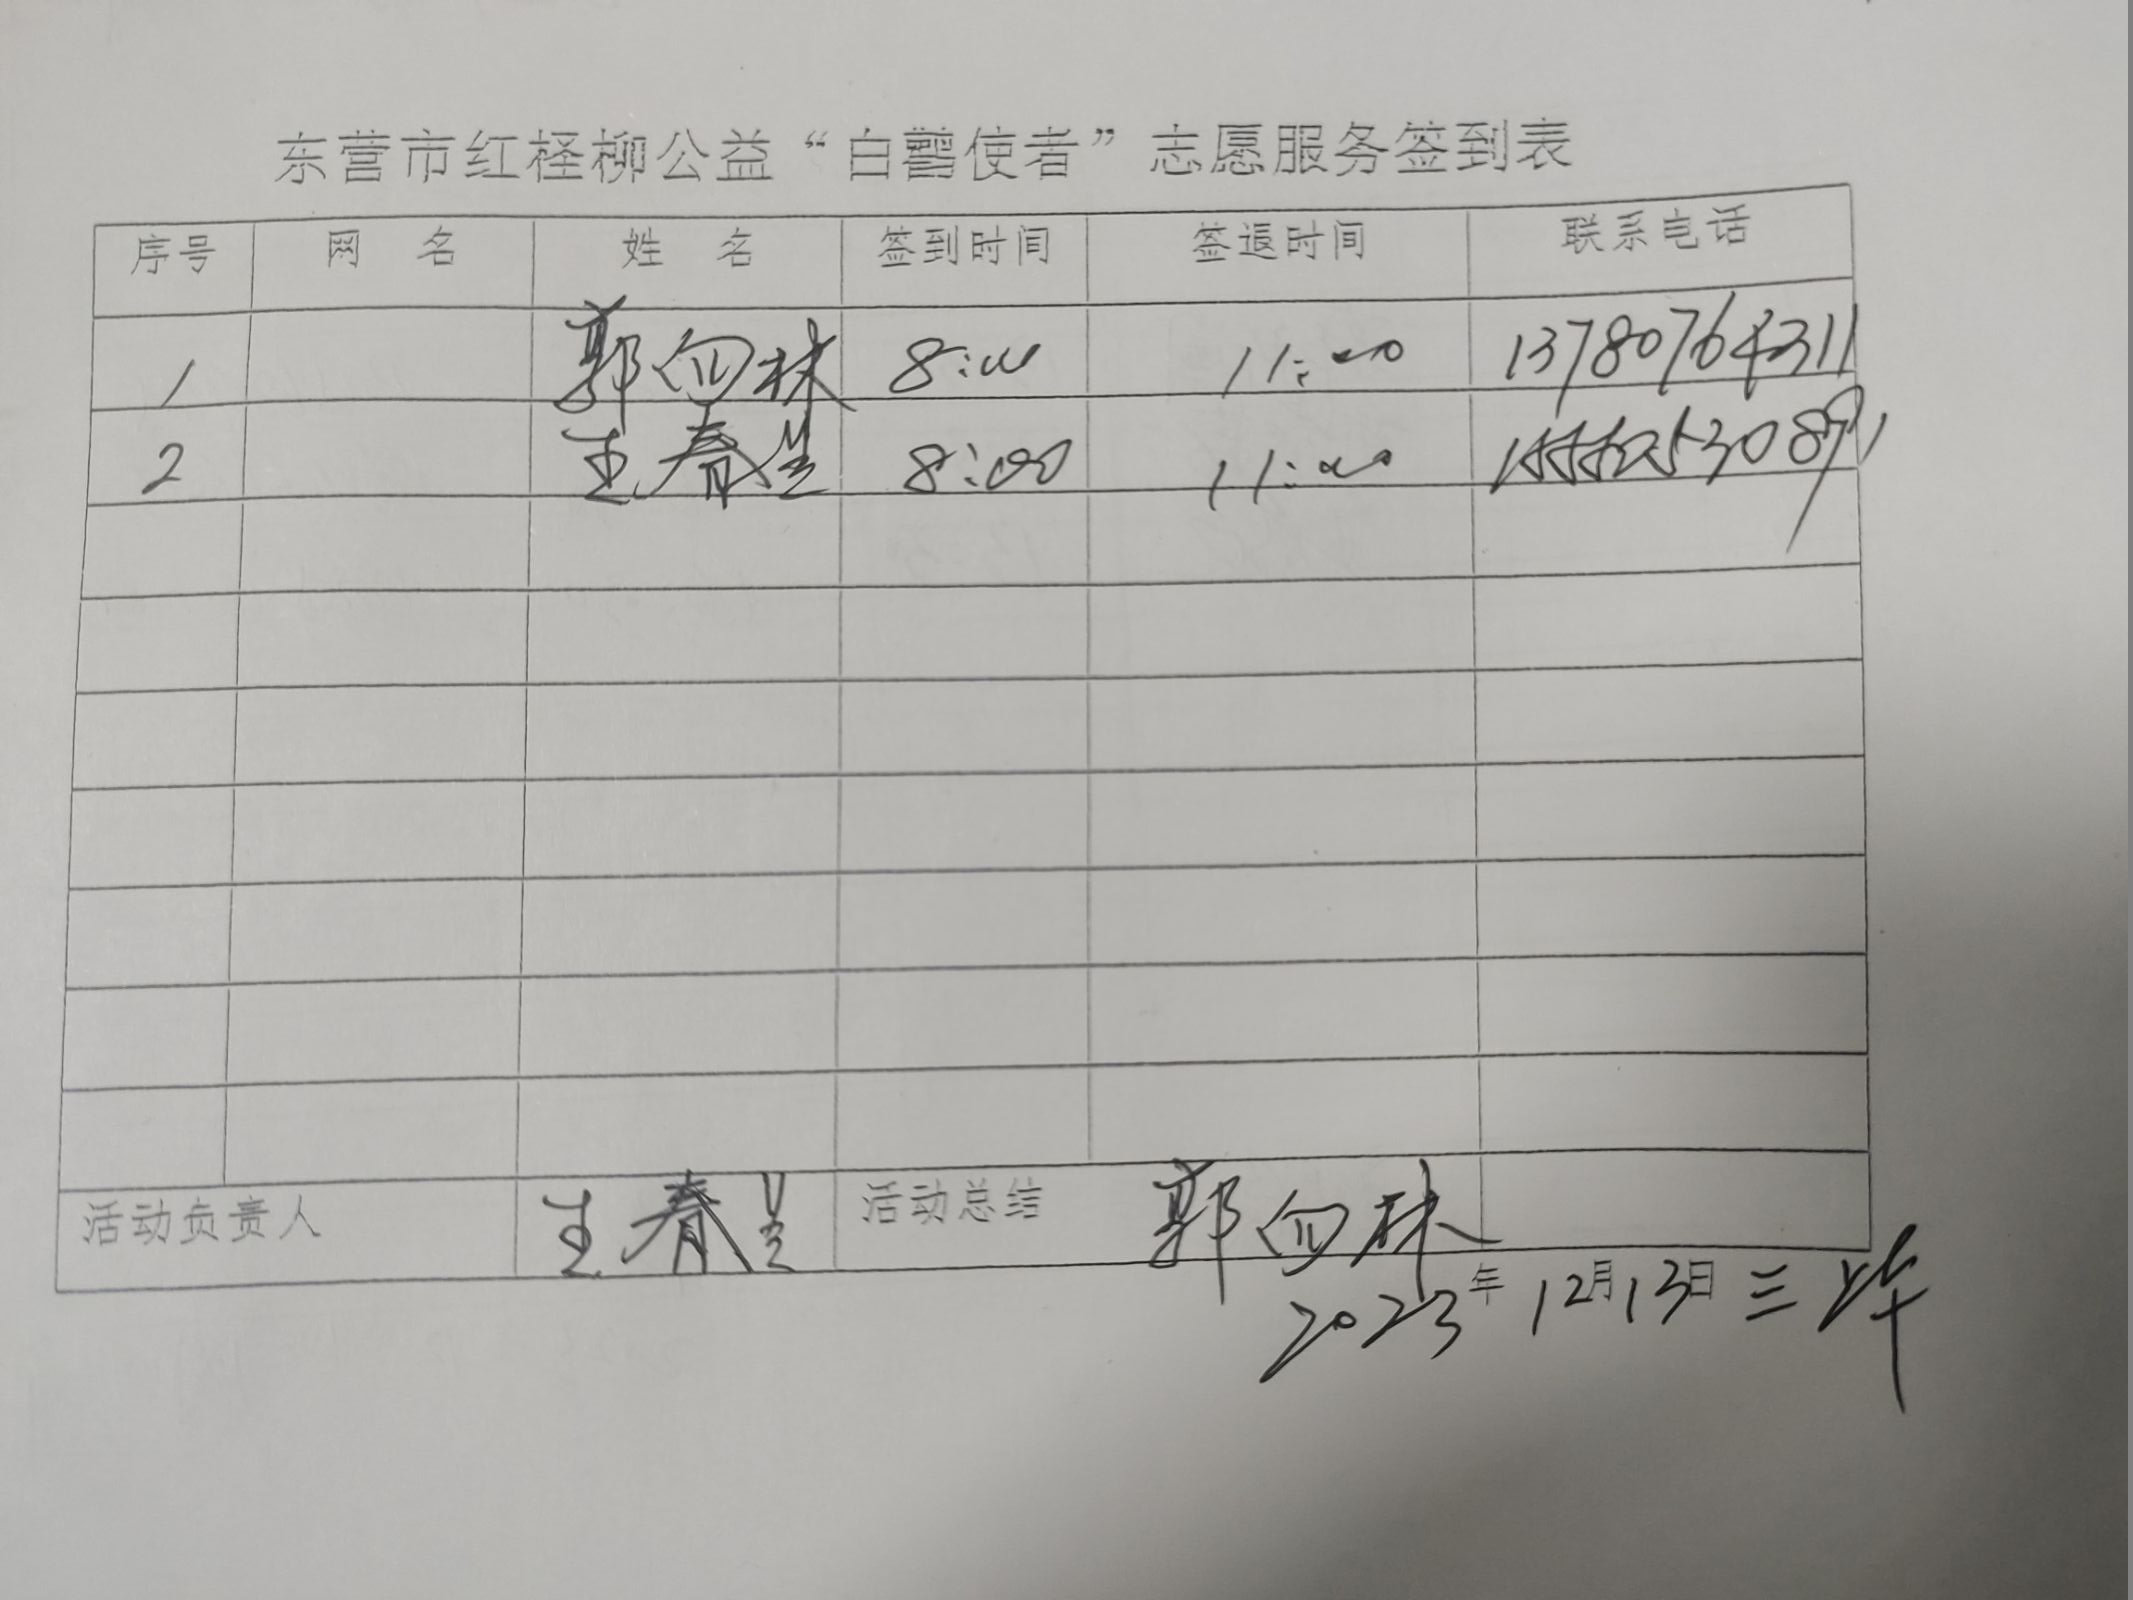 东营市红柽柳公益“白鹳使者”志愿服务签到表
序号 网 名 姓 名 签到时间 签退时间 联系电话
1 郭向林 8:00 11:00 13780764311
2 王春兰 8:00 11:00
活动负责人 王春兰 活动总结 郭向林
2023年12月13日 三